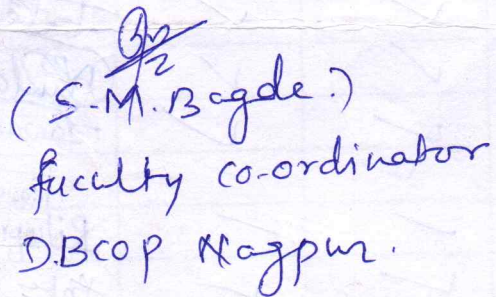 (S.M. Bagde.)
faculty co-ordinator
D.BCOP Nagpur.